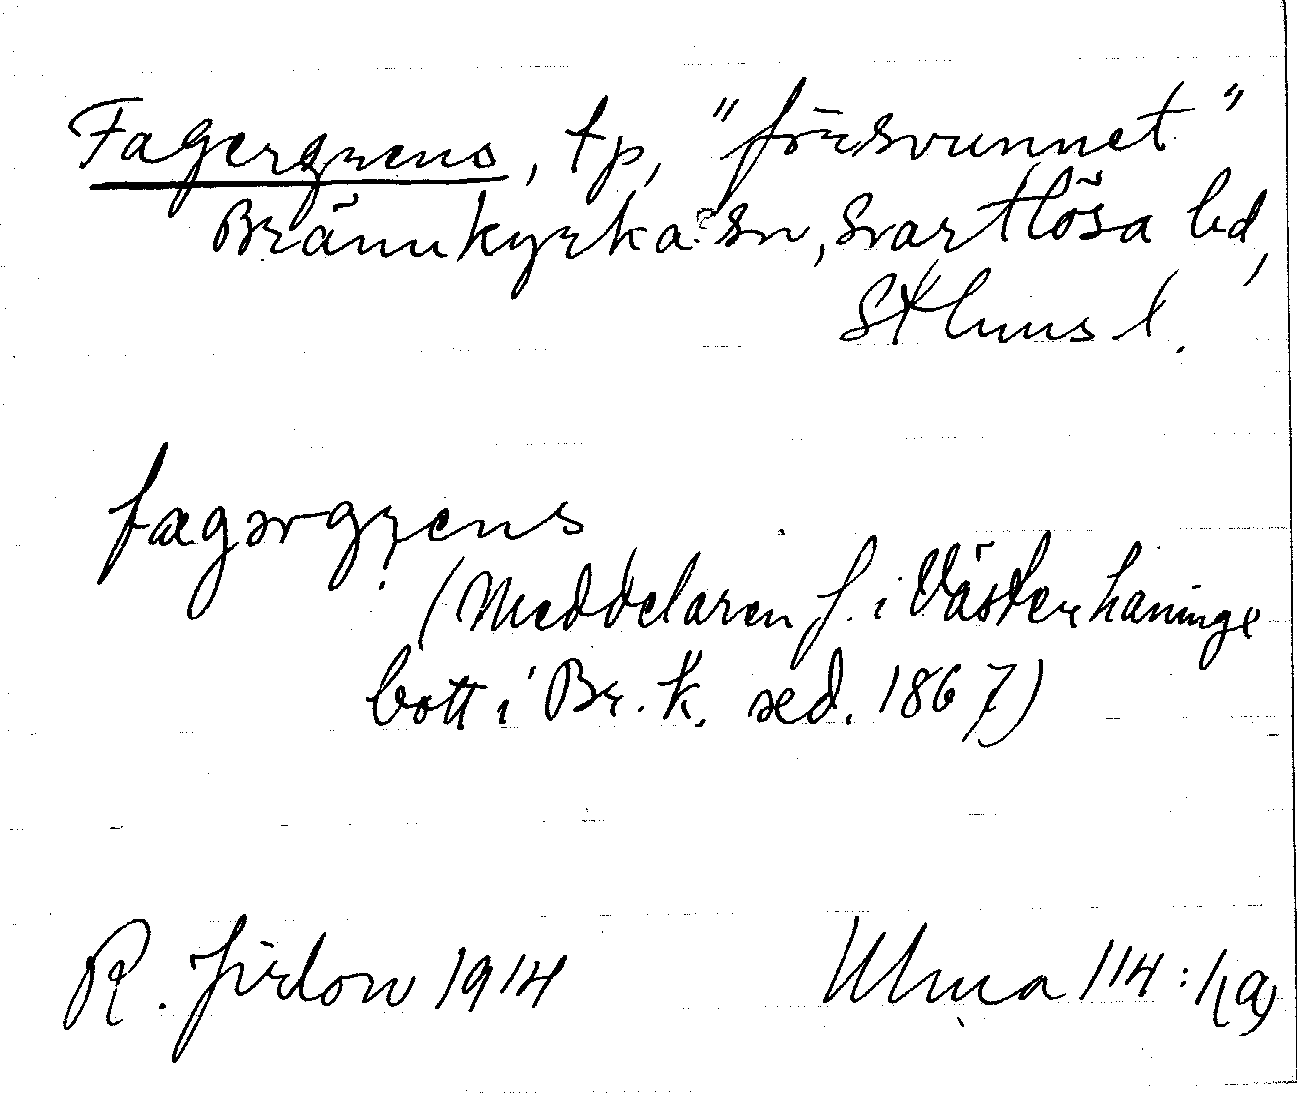 Fagergrens, tp, "försvunnet"
Brännkyrka sn, Svartlösa hd,
Sthlms l.
fagərgrens
(Meddelaren f. i Västerhaninge
bott i Br.k. sed. 1867)
R. Jirlow 1914
Ulma 114:1(a)